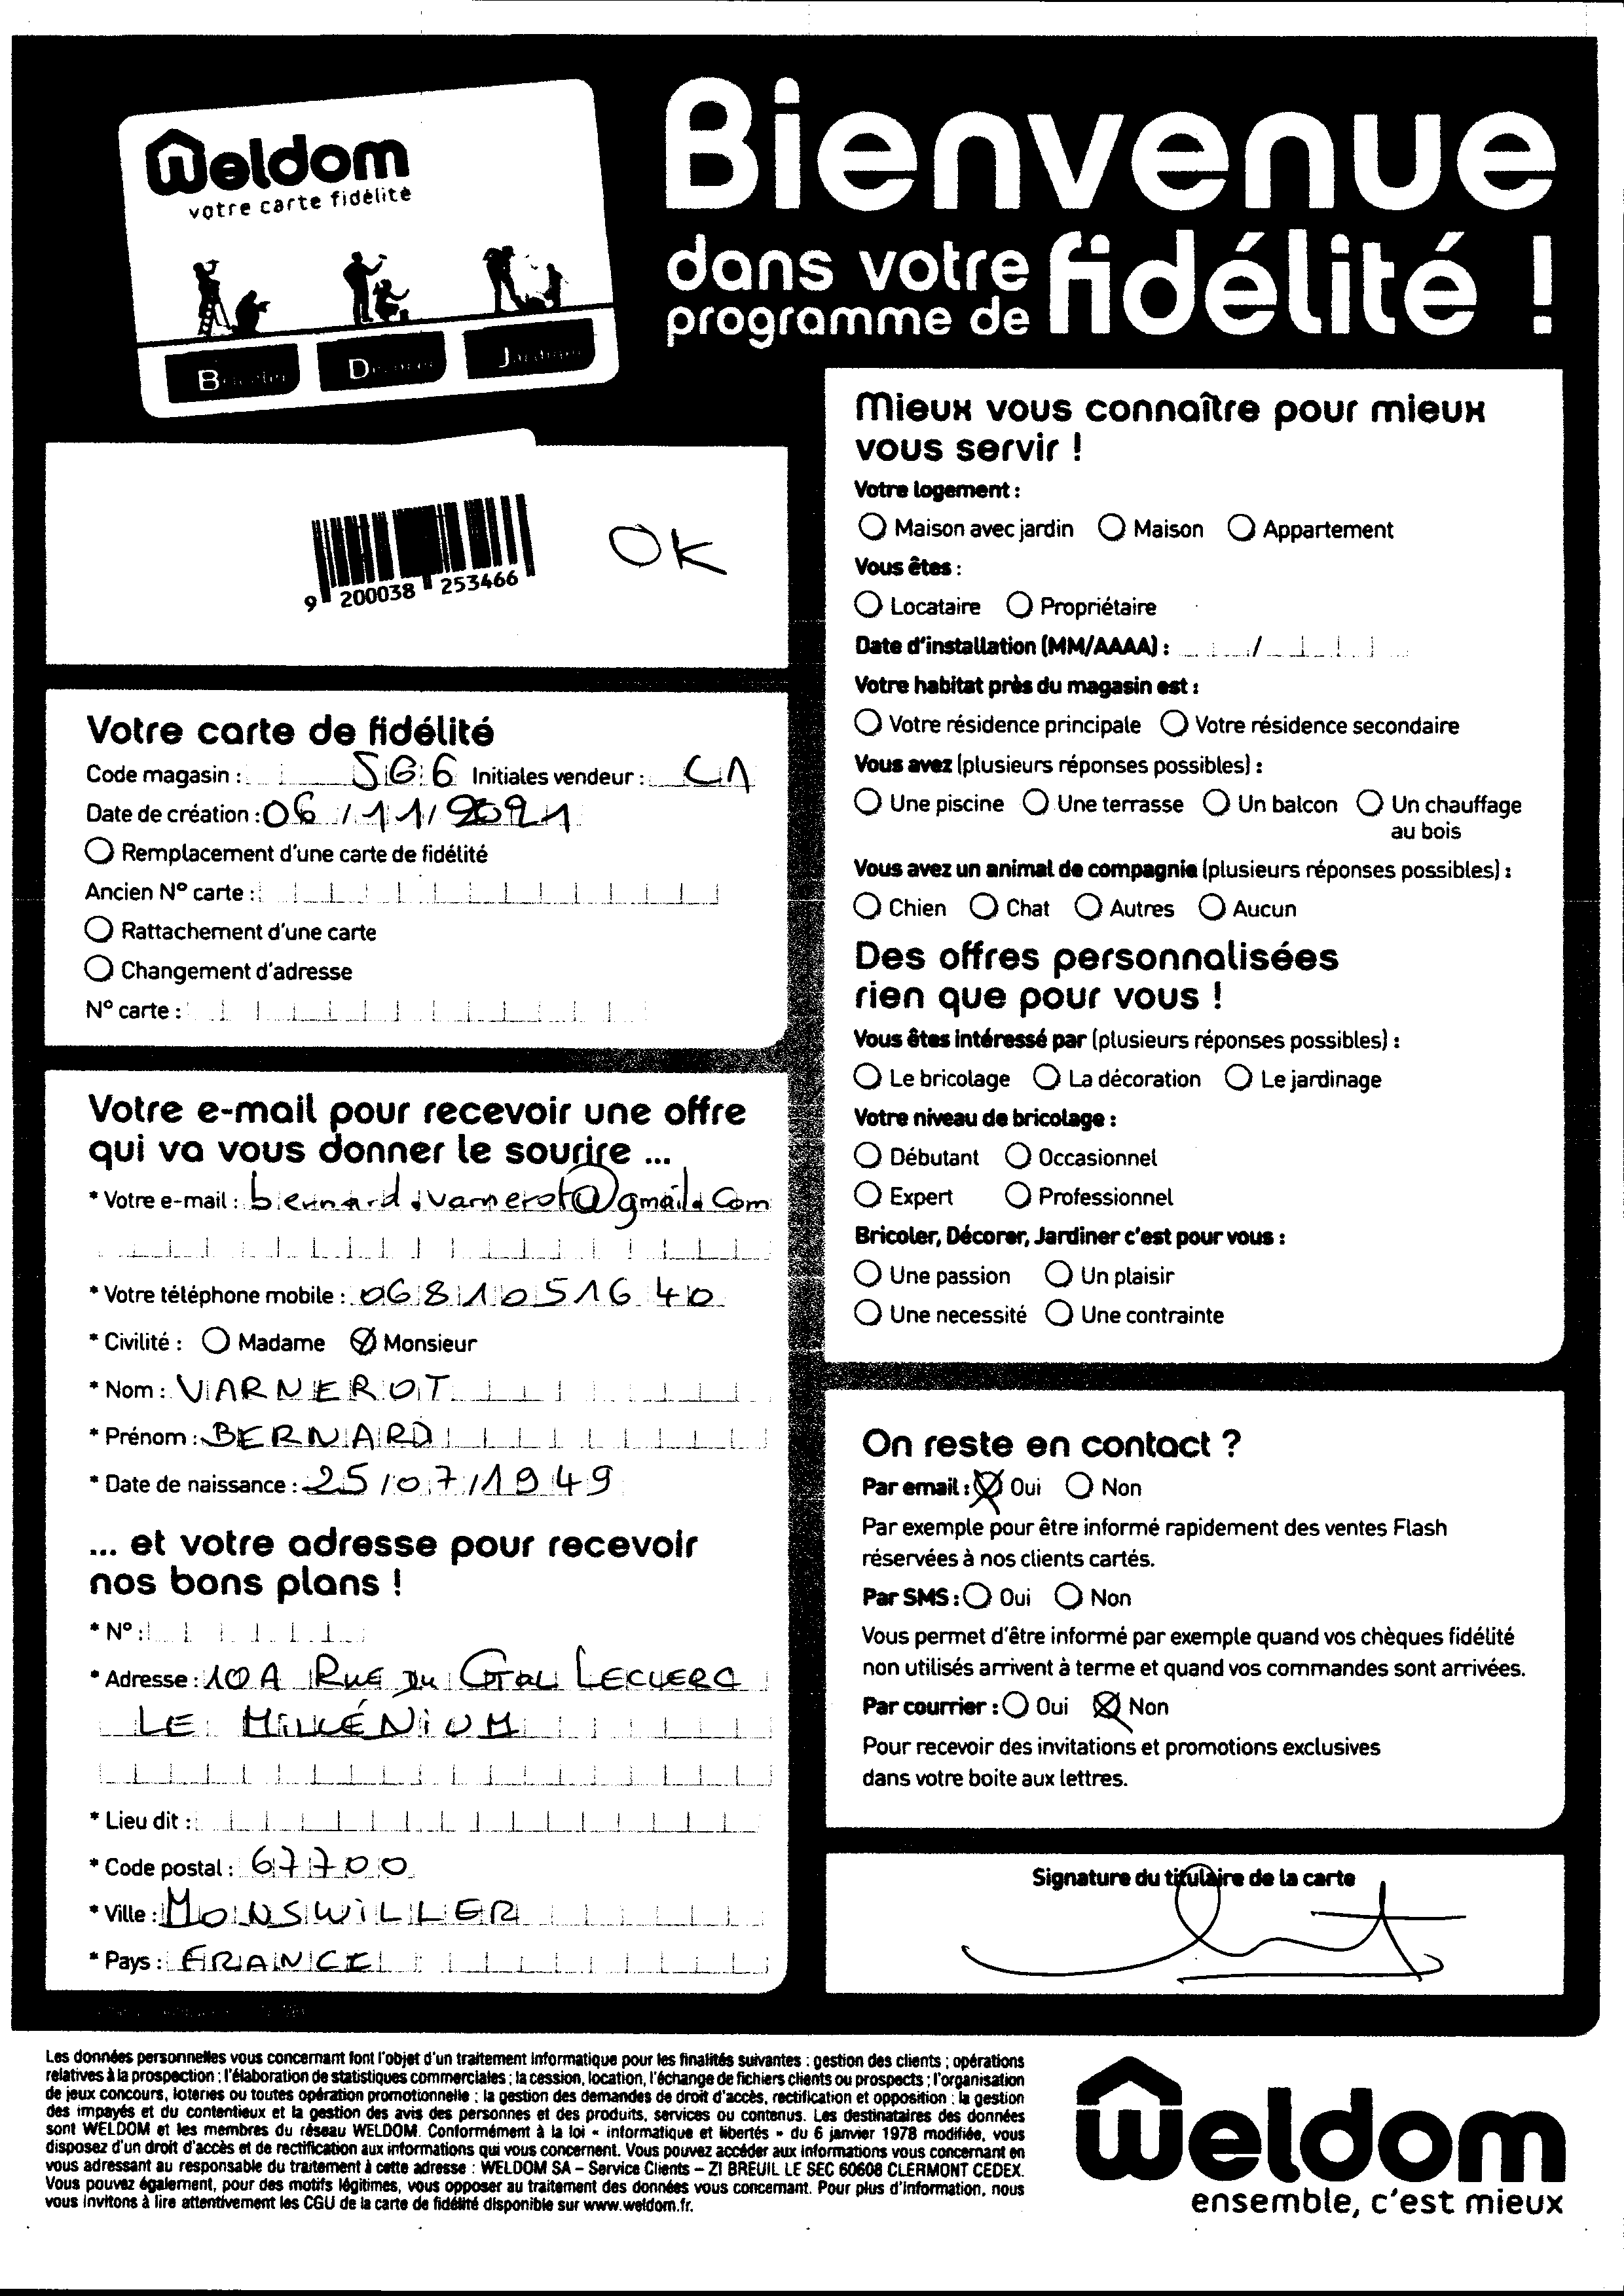 Weldom
votre carte fidélité
Bricoler Décorer Jardiner
Bienvenue
dans votre
programme de fidélité !
9 200038 253466
OK
Votre carte de fidélité
Code magasin : 5G6 Initiales vendeur : CA
Date de création : 06/11/2021
Remplacement d'une carte de fidélité
Ancien N° carte :
Rattachement d'une carte
Changement d'adresse
N° carte :
Votre e-mail pour recevoir une offre
qui va vous donner le sourire ...
* Votre e-mail : bernard.varnerot@gmail.com
* Votre téléphone mobile : 0681051640
* Civilité : Madame Monsieur
* Nom : VARNEROT
* Prénom : BERNARD
* Date de naissance : 25/07/1949
... et votre adresse pour recevoir
nos bons plans !
* N° :
* Adresse : 10A RUE DU GAL LECLERC
LE MILLÉNIUM
* Lieu dit :
* Code postal : 67700
* Ville : MONSWILLER
* Pays : FRANCE
Mieux vous connaître pour mieux
vous servir !
Votre logement :
Maison avec jardin Maison Appartement
Vous êtes :
Locataire Propriétaire
Date d'installation (MM/AAAA) : /
Votre habitat près du magasin est :
Votre résidence principale Votre résidence secondaire
Vous avez (plusieurs réponses possibles) :
Une piscine Une terrasse Un balcon Un chauffage
au bois
Vous avez un animal de compagnie (plusieurs réponses possibles) :
Chien Chat Autres Aucun
Des offres personnalisées
rien que pour vous !
Vous êtes intéressé par (plusieurs réponses possibles) :
Le bricolage La décoration Le jardinage
Votre niveau de bricolage :
Débutant Occasionnel
Expert Professionnel
Bricoler, Décorer, Jardiner c'est pour vous :
Une passion Un plaisir
Une necessité Une contrainte
On reste en contact ?
Par email : Oui Non
Par exemple pour être informé rapidement des ventes Flash
réservées à nos clients cartés.
Par SMS : Oui Non
Vous permet d'être informé par exemple quand vos chèques fidélité
non utilisés arrivent à terme et quand vos commandes sont arrivées.
Par courrier : Oui Non
Pour recevoir des invitations et promotions exclusives
dans votre boite aux lettres.
Signature du titulaire de la carte
Les données personnelles vous concernant font l'objet d'un traitement informatique pour les finalités suivantes : gestion des clients ; opérations
relatives à la prospection ; l'élaboration de statistiques commerciales ; la cession, location, l'échange de fichiers clients ou prospects ; l'organisation
de jeux concours, loteries ou toutes opération promotionnelle ; la gestion des demandes de droit d'accès, rectification et opposition ; la gestion
des impayés et du contentieux et la gestion des avis des personnes et des produits, services ou contenus. Les destinataires des données
sont WELDOM et les membres du réseau WELDOM. Conformément à la loi « informatique et libertés » du 6 janvier 1978 modifiée, vous
disposez d'un droit d'accès et de rectification aux informations qui vous concernent. Vous pouvez accéder aux informations vous concernant en
vous adressant au responsable du traitement à cette adresse : WELDOM SA – Service Clients – ZI BREUIL LE SEC 60608 CLERMONT CEDEX.
Vous pouvez également, pour des motifs légitimes, vous opposer au traitement des données vous concernant. Pour plus d'information, nous
vous invitons à lire attentivement les CGU de la carte de fidélité disponible sur www.weldom.fr.
Weldom
ensemble, c'est mieux